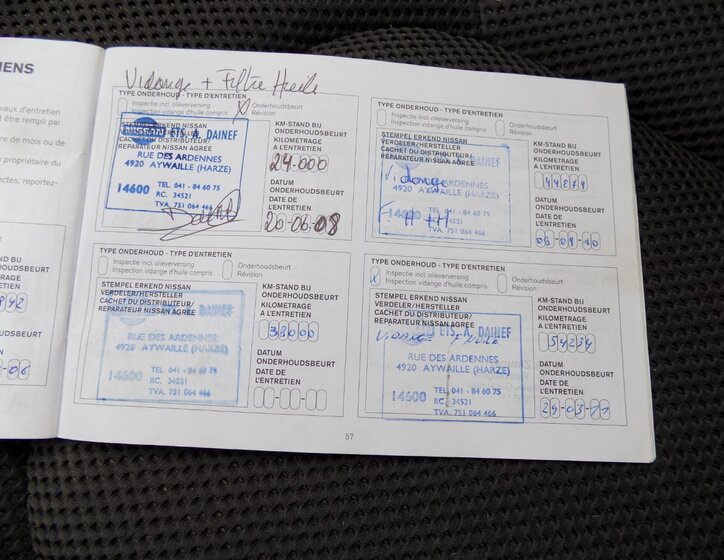 MENS
vaux d'entretien
t être rempli par
e de mois ou de
u propriétaire du
ectes, reportez-
Vidange + Filtre Huile
TYPE ONDERHOUD - TYPE D'ENTRETIEN
Inspectie incl. olieverversing
Inspection vidange d'huile compris
X
Onderhoudsbeurt
Révision
STEMPEL ERKEND NISSAN
CACHET DU DISTRIBUTEUR/
REPARATEUR NISSAN AGREE
NISSAN ETS. A. DAINEF
RUE DES ARDENNES
4920 AYWAILLE (HARZE)
14600
TEL. 041 - 84 60 75
RC. 34521
TVA. 751 064 466
KM-STAND BIJ
ONDERHOUDSBEURT
KILOMETRAGE
A L'ENTRETIEN
24.000
DATUM
ONDERHOUDSBEURT
DATE DE
L'ENTRETIEN
20-06-08
TYPE ONDERHOUD - TYPE D'ENTRETIEN
Inspectie incl. olieverversing
Inspection vidange d'huile compris
Onderhoudsbeurt
Révision
STEMPEL ERKEND NISSAN
VERDELER/HERSTELLER
CACHET DU DISTRIBUTEUR/
REPARATEUR NISSAN AGREE
DAINEF
Vidange
ARDENNES
4920 AYWAILLE (HARZE)
14600
TEL. 041 - 84 60 75
RC. 34521
TVA. 751 064 466
F. H + H
KM-STAND BIJ
ONDERHOUDSBEURT
KILOMETRAGE
A L'ENTRETIEN
DATUM
ONDERHOUDSBEURT
DATE DE
L'ENTRETIEN
TYPE ONDERHOUD - TYPE D'ENTRETIEN
Inspectie incl. olieverversing
Inspection vidange d'huile compris
Onderhoudsbeurt
Révision
STEMPEL ERKEND NISSAN
VERDELER/HERSTELLER
CACHET DU DISTRIBUTEUR/
REPARATEUR NISSAN AGREE
DAINEF
RUE DES ARDENNES
4920 AYWAILLE (HARZE)
14600
TEL. 041 - 84 60 75
RC. 34521
TVA. 751 064 466
KM-STAND BIJ
ONDERHOUDSBEURT
KILOMETRAGE
A L'ENTRETIEN
38000
DATUM
ONDERHOUDSBEURT
DATE DE
L'ENTRETIEN
TYPE ONDERHOUD - TYPE D'ENTRETIEN
x
Inspectie incl. olieverversing
Inspection vidange d'huile compris
Onderhoudsbeurt
Révision
STEMPEL ERKEND NISSAN
VERDELER/HERSTELLER
CACHET DU DISTRIBUTEUR/
REPARATEUR NISSAN AGREE
ETS. A. DAINEF
VIDANGE F HUILE
RUE DES ARDENNES
4920 AYWAILLE (HARZE)
14600
TEL. 041 - 84 60 75
RC. 34521
TVA. 751 064 466
KM-STAND BIJ
ONDERHOUDSBEURT
KILOMETRAGE
A L'ENTRETIEN
54234
DATUM
ONDERHOUDSBEURT
DATE DE
L'ENTRETIEN
24-03-11
57